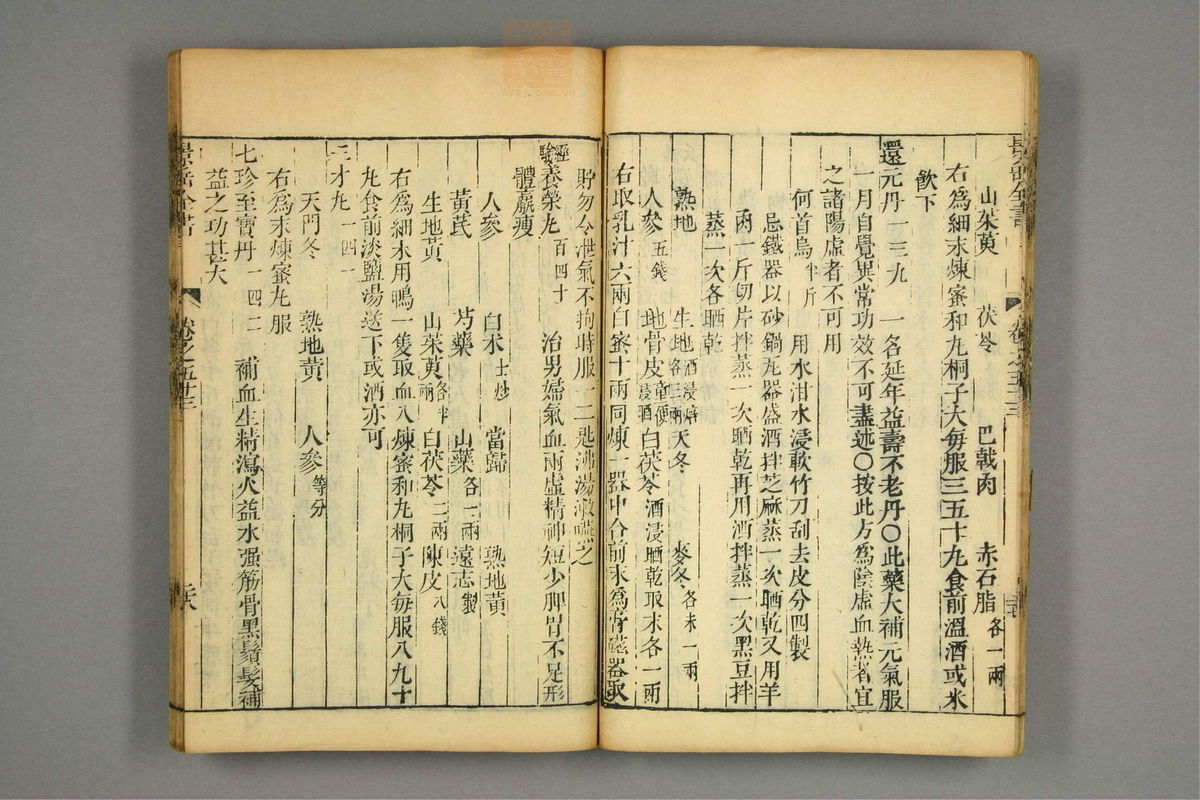 山茱萸 茯苓 巴戟肉 赤石脂各一兩
右爲細末煉蜜和丸桐子大每服三五十丸食前溫酒或米
飲下
還元丹一三九 一名延年益壽不老丹〇此藥大補元氣服
一月自覺異常功效不可盡述〇按此方爲陰虛血熱者宜
之諸陽虛者不可用
何首烏半斤 用水泔水浸軟竹刀刮去皮分四製
忌鐵器以砂鍋瓦器盛酒拌芝麻蒸一次晒乾又用羊
肉一斤切片拌蒸一次晒乾再用酒拌蒸一次黑豆拌
蒸一次各晒乾
熟地 生地酒浸焙各三兩 天冬 麥冬各末一兩
人參五錢 地骨皮童便浸晒 白茯苓酒浸晒乾取末各一兩
右取乳汁六兩白蜜十兩同煉一器中合前末爲膏磁器收
貯勿令泄氣不拘時服一二匙沸湯嚥之
經驗養榮丸百四十 治男婦氣血兩虛精神短少脾胃不足形
體羸瘦
人參 白朮土炒 當歸 熟地黃
黃芪 芍藥 山藥各一兩 遠志製
生地黃 山茱萸各半兩 白茯苓二兩 陳皮八錢
右爲細末用鴨一隻取血入煉蜜和丸桐子大每服八九十
丸食前淡鹽湯送下或酒亦可
三才丸一四一
天門冬 熟地黃 人參等分
右爲末煉蜜丸服
七珍至寶丹一四二 補血生精瀉火益水强筋骨黑鬚髮補
益之功甚大
景岳全書 卷之五十三